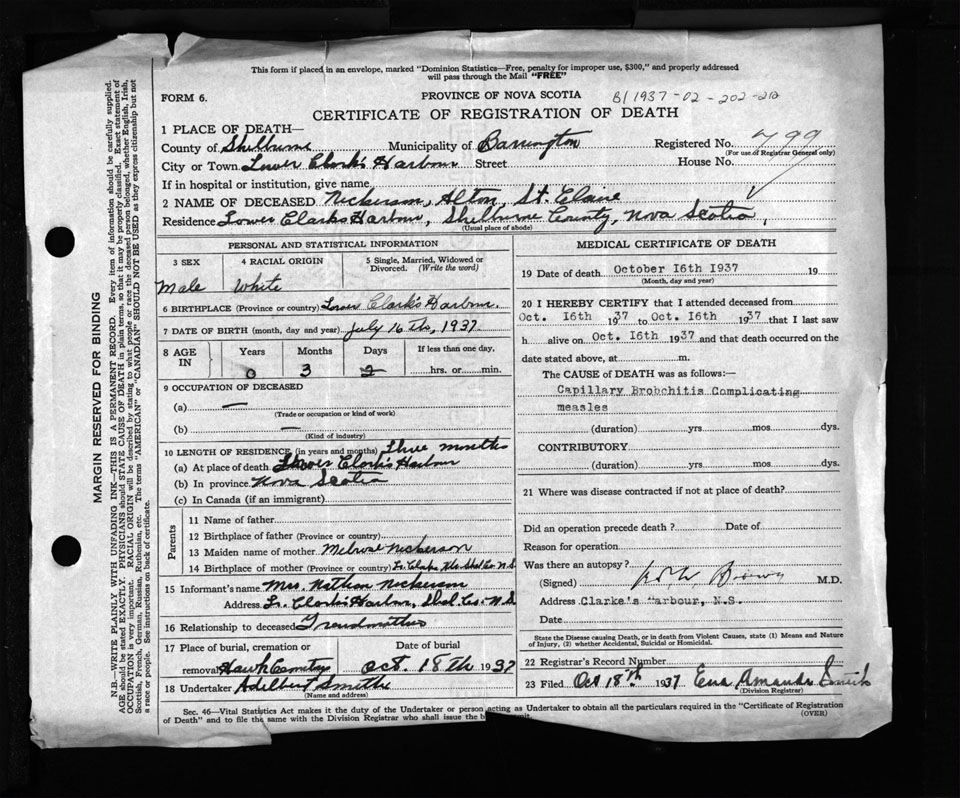 This form if placed in an envelope, marked "Dominion Statistics—Free, penalty for improper use, $300," and properly addressed
will pass through the Mail "FREE"
FORM 6.
PROVINCE OF NOVA SCOTIA
B/1937-02-202-212
CERTIFICATE OF REGISTRATION OF DEATH
1 PLACE OF DEATH—
County of Shelburne Municipality of Barrington Registered No. 799
(For use of Registrar General only)
City or Town Lower Clark's Harbour Street House No.
If in hospital or institution, give name
2 NAME OF DECEASED Nickerson, Alton, St. Elaire
Residence Lower Clarks Harbour, Shelburne County, Nova Scotia,
(Usual place of abode)
PERSONAL AND STATISTICAL INFORMATION
3 SEX 4 RACIAL ORIGIN 5 Single, Married, Widowed or
Divorced. (Write the word)
Male White
6 BIRTHPLACE (Province or country) Lower Clark's Harbour.
7 DATE OF BIRTH (month, day and year) July 16th, 1937
8 AGE IN Years Months Days If less than one day,
0 3 2 hrs. or min.
9 OCCUPATION OF DECEASED
(a) —
(Trade or occupation or kind of work)
(b) —
(Kind of industry)
10 LENGTH OF RESIDENCE (in years and months) Three months
(a) At place of death Lower Clark's Harbour
(b) In province Nova Scotia
(c) In Canada (if an immigrant)
Parents
11 Name of father
12 Birthplace of father (Province or country)
13 Maiden name of mother Melrose Nickerson
14 Birthplace of mother (Province or country) Lr. Clarks Hbr. Shel Co. N.S
15 Informant's name Mrs. Nathan Nickerson
Address Lr. Clark's Harbor, Shel. Co. N.S
16 Relationship to deceased Grandmother
17 Place of burial, cremation or Date of burial
removal Hawk Cemetery Oct. 18th 1937
18 Undertaker Adelbert Smith
(Name and address)
MEDICAL CERTIFICATE OF DEATH
19 Date of death October 16th 1937 19
(Month, day and year)
20 I HEREBY CERTIFY that I attended deceased from
Oct. 16th 1937 to Oct. 16th 1937 that I last saw
h alive on Oct. 16th 1937 and that death occurred on the
date stated above, at m.
The CAUSE of DEATH was as follows:—
Capillary Brobchitis Complicating
measles
(duration) yrs. mos. dys.
CONTRIBUTORY
(duration) yrs. mos. dys.
21 Where was disease contracted if not at place of death?
Did an operation precede death? Date of
Reason for operation
Was there an autopsy?
(Signed) Brown M.D.
Address Clarke's Harbour, N.S.
Date
State the Disease causing Death, or in death from Violent Causes, state (1) Means and Nature
of Injury, (2) whether Accidental, Suicidal or Homicidal.
22 Registrar's Record Number
23 Filed Oct 18th 1937 Amanda Smith
(Division Registrar)
Sec. 46—Vital Statistics Act makes it the duty of the Undertaker or person acting as Undertaker to obtain all the particulars required in the "Certificate of Registration
of Death" and to file the same with the Division Registrar who shall issue the
(OVER)
MARGIN RESERVED FOR BINDING
N.B.—WRITE PLAINLY WITH UNFADING INK—THIS IS A PERMANENT RECORD. Every item of information should be carefully supplied.
AGE should be stated EXACTLY. PHYSICIANS should STATE CAUSE OF DEATH in plain terms, so that it may be properly classified. Exact statement of
OCCUPATION is very important. RACIAL ORIGIN will be described by stating to what people or race the deceased person belonged, whether English, Irish,
Scottish, French, German, Russian, Ruthenian, etc. The terms "AMERICAN" or "CANADIAN" SHOULD NOT BE USED as they express citizenship but not
a race or people. See instructions on back of certificate.